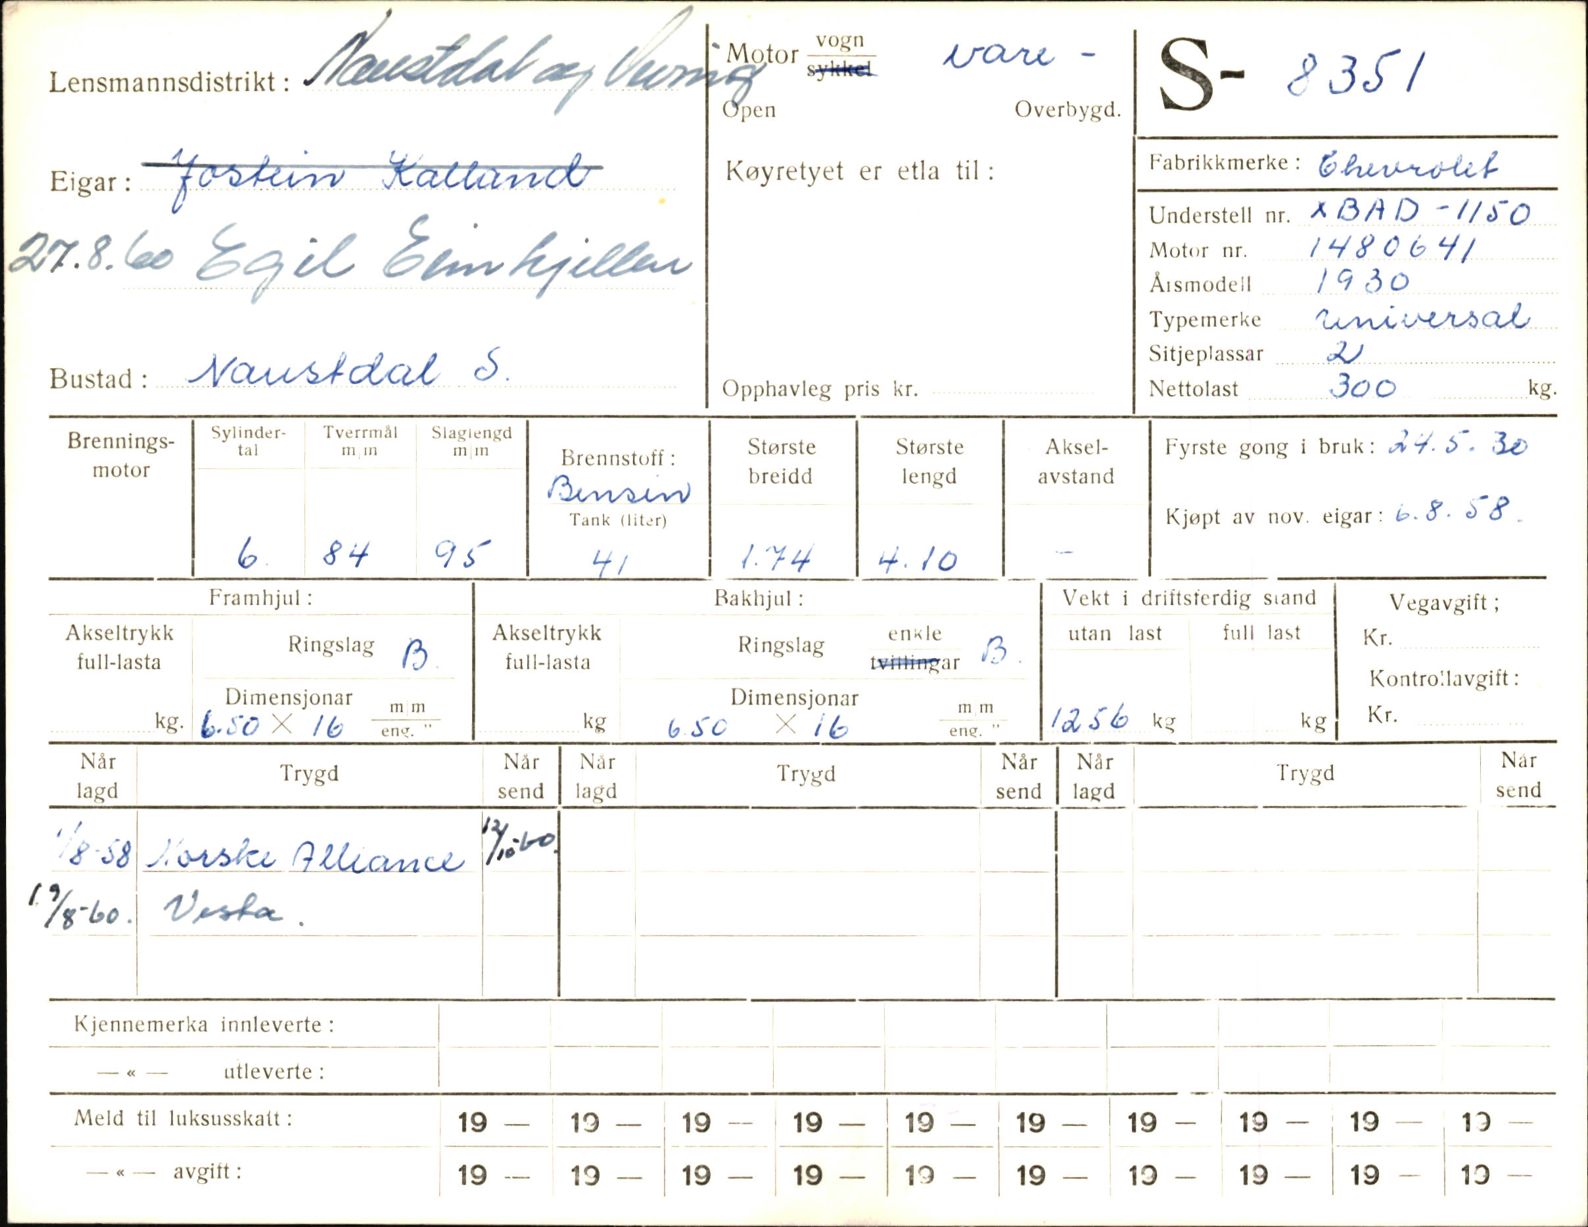 Lensmannsdistrikt: Naustdal og Vevring
Motor vogn sykkel vare -
Open Overbygd.
S- 8351
Eigar: Jostein Kalland
27.8.60 Egil Eimhjellen
Bustad: Naustdal S.
Køyretyet er etla til:
Opphavleg pris kr.
Fabrikkmerke: Chevrolet
Understell nr. xBAD-1150
Motor nr. 1480641
Årsmodell 1930
Typemerke universal
Sitjeplassar 2
Nettolast 300 kg.
Brennings-motor
Sylinder-tal 6.
Tverrmål m|m 84
Slaglengd m|m 95
Brennstoff: Bensin
Tank (liter) 41
Største breidd 1.74
Største lengd 4.10
Aksel-avstand -
Fyrste gong i bruk: 24.5.30
Kjøpt av nov. eigar: 6.8.58.
Framhjul:
Akseltrykk full-lasta kg.
Ringslag B.
Dimensjonar 6.50 X 16 m|m eng. "
Bakhjul:
Akseltrykk full-lasta kg
Ringslag enkle tvillingar B.
Dimensjonar 6.50 X 16 m|m eng. "
Vekt i driftsferdig stand
utan last 1256 kg
full last kg
Vegavgift;
Kr.
Kontrollavgift:
Kr.
Når lagd Trygd Når send Når lagd Trygd Når send Når lagd Trygd Når send
/8-58 Norske Alliance 12/10-60.
19/8-60. Vesta.
Kjennemerka innleverte:
— « — utleverte:
Meld til luksusskatt: 19 — 19 — 19 — 19 — 19 — 19 — 19 — 19 — 19 — 19 —
— « — avgift: 19 — 19 — 19 — 19 — 19 — 19 — 19 — 19 — 19 — 19 —